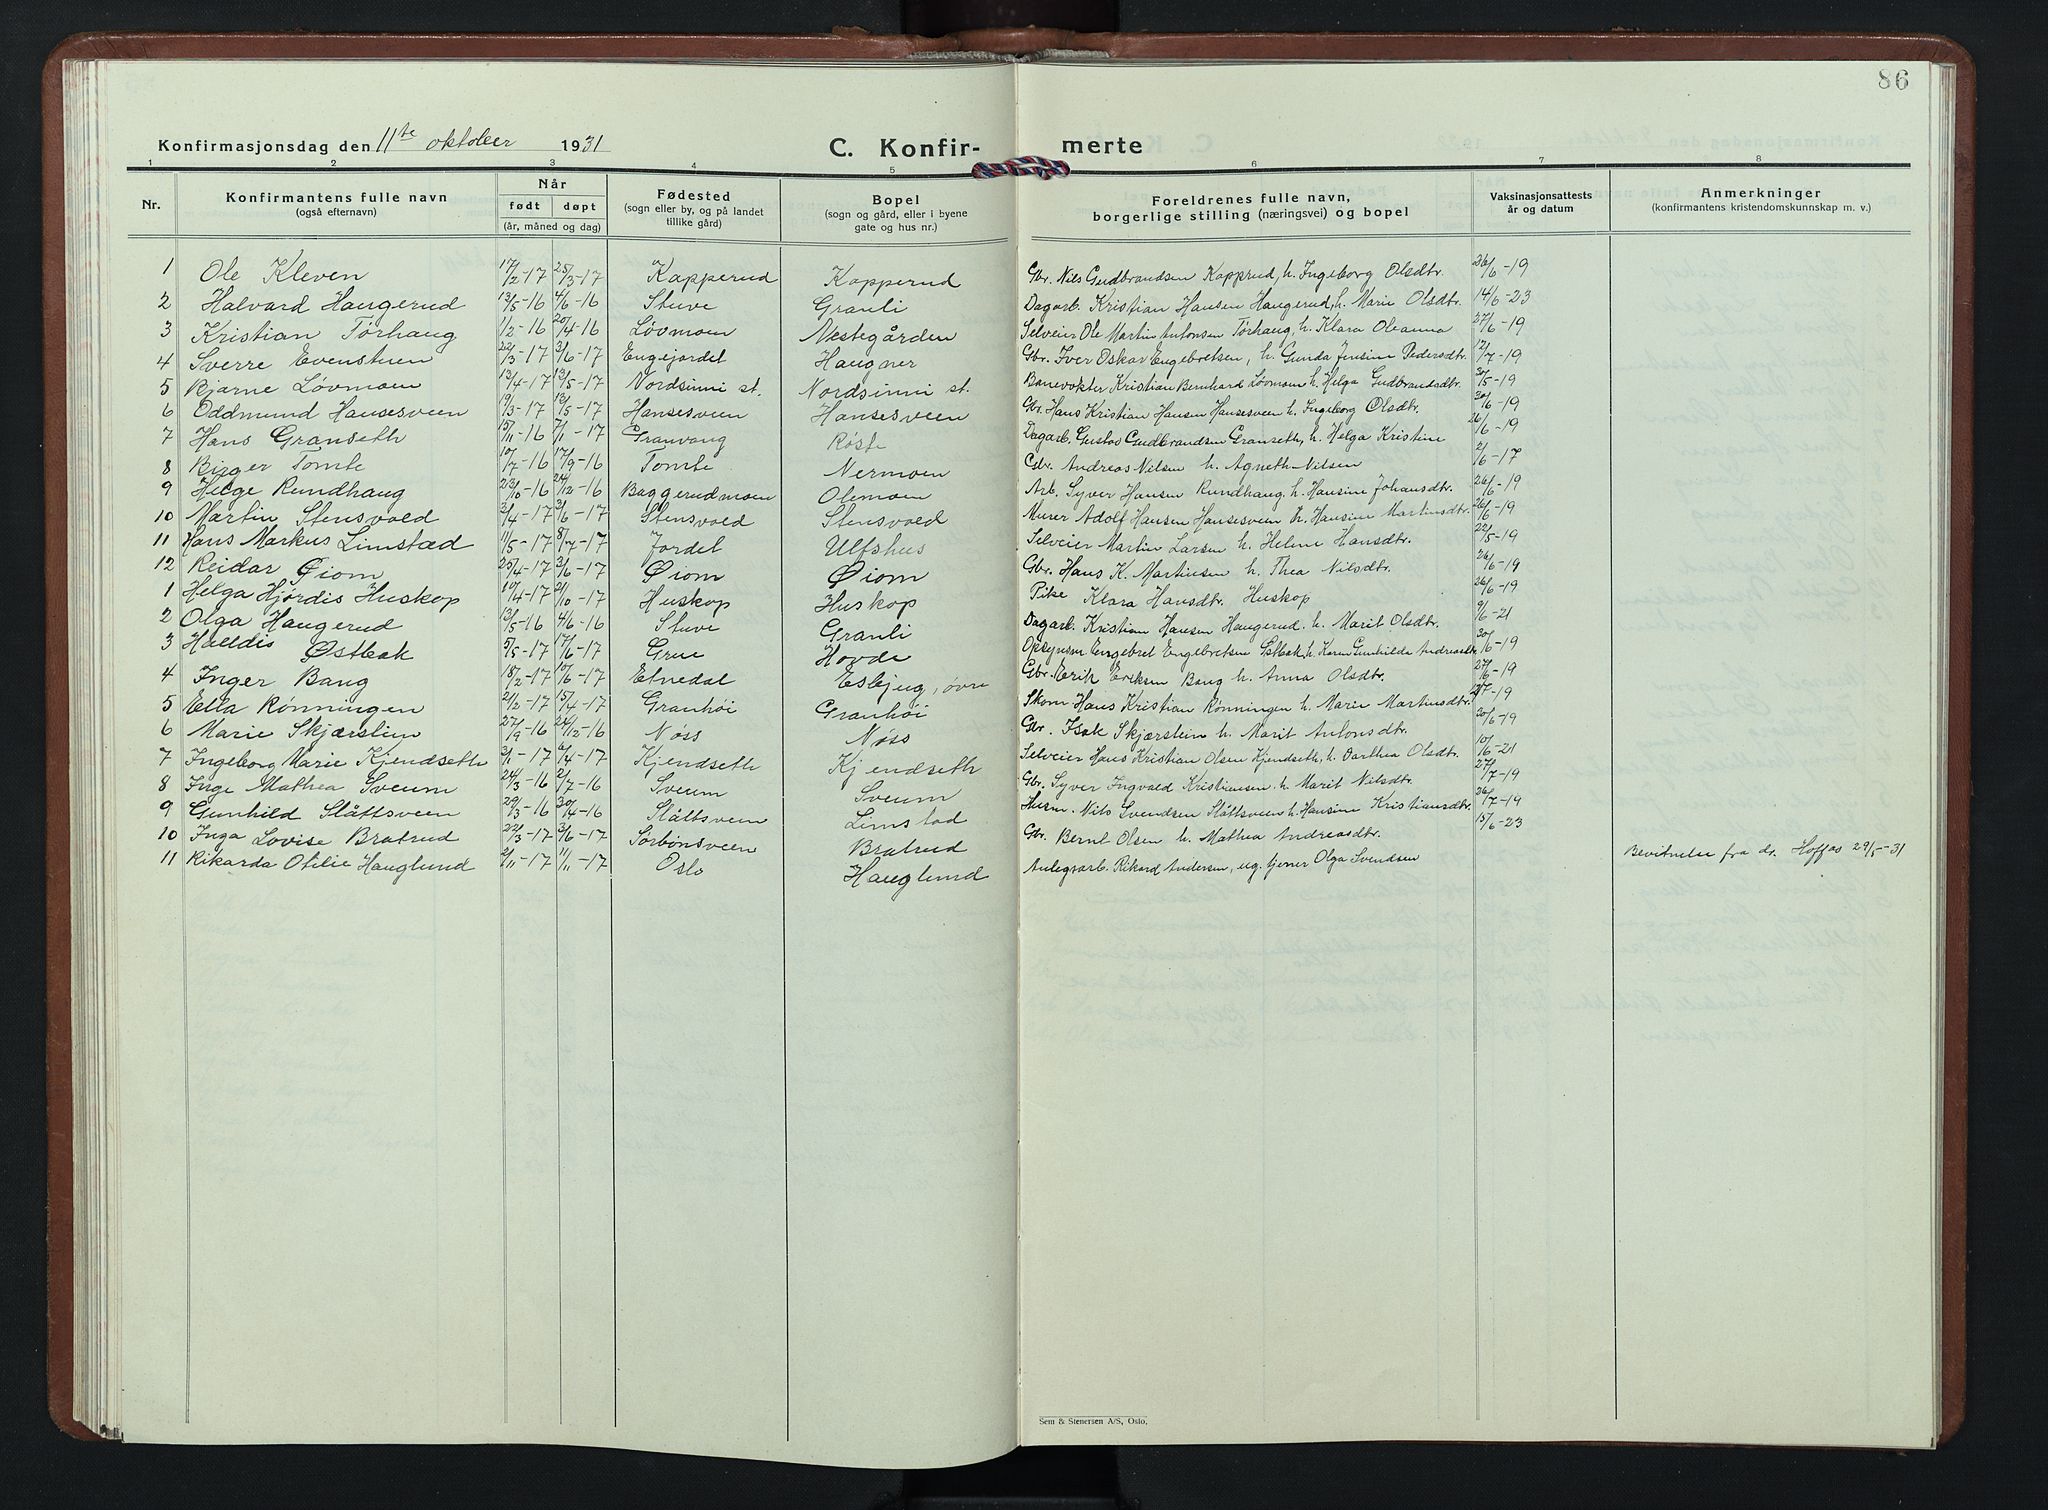 86
Konfirmasjonsdag den 11te oktober 1931 C. Konfir-merte
1 2 3 4 5 6 7 8
Nr. Konfirmantens fulle navn (også efternavn) Når født døpt (år, måned og dag) Fødested (sogn eller by, og på landet tillike gård) Bopel (sogn og gård, eller i byene gate og hus nr.) Foreldrenes fulle navn, borgerlige stilling (næringsvei) og bopel Vaksinasjonsattests år og datum Anmerkninger (konfirmantens kristendomskunnskap m. v.)
1 Ole Kleven 17/2-17 25/3-17 Kapperud Kapperud Gbr. Nils Gudbrandsen Kapprud, h. Ingeborg Olsdtr. 26/6-19
2 Halvard Haugerud 13/5-16 4/6-16 Stuve Granli Dagarb. Kristian Hansen Haugerud, h. Marie Olsdtr. 14/6-23
3 Kristian Tørhaug 1/2-16 20/4-16 Løvmoen Nestegården Selveier Ole Martin Antonsen Tørhaug h. Klara Oleanna 27/6-19
4 Sverre Evenstuen 22/3-17 3/6-17 Engejordet Haugner Gbr. Iver Oskar Engebretsen, h. Gunda Jensine Pedersdtr. 12/7-19
5 Bjarne Løvmoen 13/4-17 13/5-17 Nordsinni st. Nordsinni st. Banevokter Kristian Bernhard Løvmoen h. Helga Gudbrandsdtr. 30/5-19
6 Oddmund Hansesveen 19/3-17 13/5-17 Hansesveen Hansesveen Gbr. Hans Kristian Hansen Hansesveen h. Ingeborg Olsdtr. 20/6-19
7 Hans Granseth 15/11-16 7/1-17 Granvang Røste Dagarb. Gustav Gudbrandsen Granseth, h. Helga Kristine 26/6-19
8 Birger Tomte 10/7-16 17/9-16 Tomte Nermoen Gbr. Andreas Nilsen h. Agneth Nilsen 2/6-17
9 Helge Rundhaug 23/10-16 24/12-16 Baggerudmoen Olemoen Arb. Syver Hansen Rundhaug h. Hansine Johansdtr. 26/6-19
10 Martin Stensvold 3/4-17 3/6-17 Stensvold Stensvold Murer Adolf Hansen Hansesveen h. Hansine Martinsdtr. 26/6-19
11 Hans Markus Limstad 11/5-17 8/7-17 Jordet Ulfshus Selveier Martin Larsen h. Helene Hansdtr. 22/5-19
12 Reidar Øiom 25/4-17 3/6-17 Øiom Øiom Gbr. Hans K. Martinsen h. Thea Nilsdtr. 26/6-19
1 Helga Hjørdis Huskop 10/4-17 2/10-17 Huskop Huskop Pike Klara Hansdtr. Huskop 26/6-19
2 Olga Haugerud 13/5-16 4/6-16 Stuve Granli Dagarb. Kristian Hansen Haugerud. h. Marit Olsdtr. 9/6-21
3 Halldis Østbak 5/5-17 17/6-17 Grue Hovde Opsynsm Engebret Engebretsen Østbak, h. Karen Gunhilda Andreasdtr 30/6-19
4 Inger Bang 18/2-17 10/6-17 Etnedal Esbjug, øvre Gbr. Erik Eriksen Bang h. Anna Olsdtr. 27/6-19
5 Ella Rønningen 21/2-17 15/4-17 Granhøi Granhøi Skom Hans Kristian Rønningen h. Marie Martinsdtr. 12/7-19
6 Marie Skjærstein 27/9-16 24/12-16 Nøss Nøss Gbr. Isak Skjærstein h. Marit Antonsdtr. 20/6-19
7 Ingeborg Marie Kjendseth 3/1-17 6/4-17 Kjendseth Kjendseth Selveier Hans Kristian Olsen Kjendseth, h. Oarthea Olsdtr. 10/6-21
8 Inge Mathea Sveum 24/3-16 2/7-16 Sveum Sveum Gbr. Syver Ingvald Kristiansen. h. Marit Nilsdtr. 27/7-19
9 Gunhild Slåttsveen 29/3-16 30/4-16 Slåttsveen Limstad Husm. Nils Svendsen Slåttsveen h. Hansine Kristiansdtr. 26/7-19
10 Inga Lovise Bratrud 22/3-17 3/6-17 Sørbønsveen Bratrud Gbr. Bernt Olsen h. Mathea Andreasdtr. 15/6-23
11 Rikarda Otilie Hauglund 2/11-17 11/11-17 Oslo Hauglund Anlegsarb. Rikard Andersen, ug. tjener Olga Svendsen Bevitnelse fra dr. Hoffas 29/5-31
Sem & Stenersen A/S, Oslo.